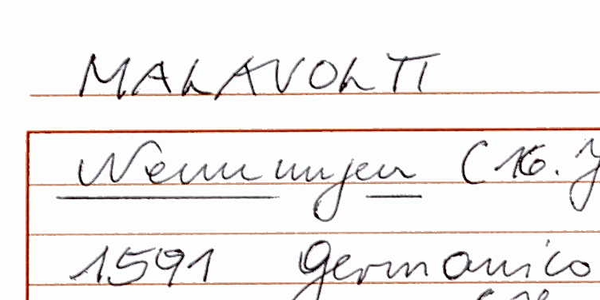 MALAVOLTI
Nennungen (16. J
1591 Germanico